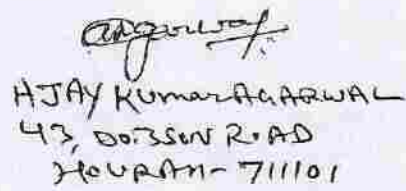 Agarwal
AJAY KUMAR AGARWAL
43, DOBSON ROAD
HOWRAH - 711101